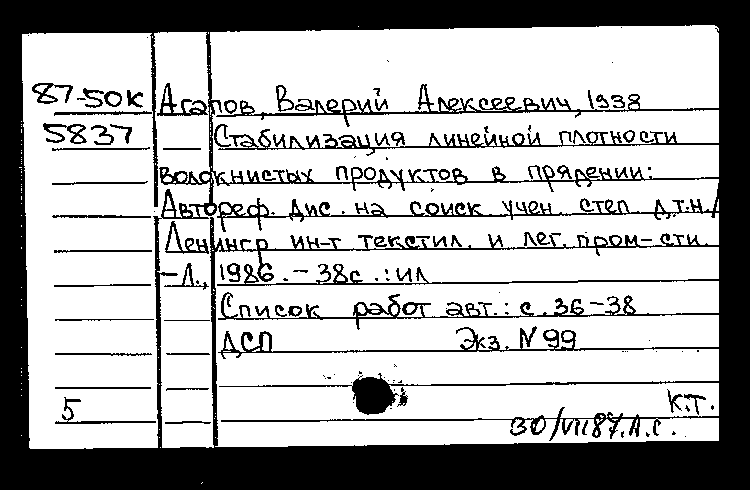 87-50К Агапов, Валерий Алексеевич, 1938
5837 Стабилизация линейной плотности
волокнистых продуктов в прядении:
Автореф. дис. на соиск учен степ д.т.н./
Ленингр ин-т текстил. и лег. пром-сти.
-Л., 1986. - 38с. : ил
Список работ авт.: с. 36-38
ДСП Экз. N 99
5 К.Т.
30/VII87. А.С.